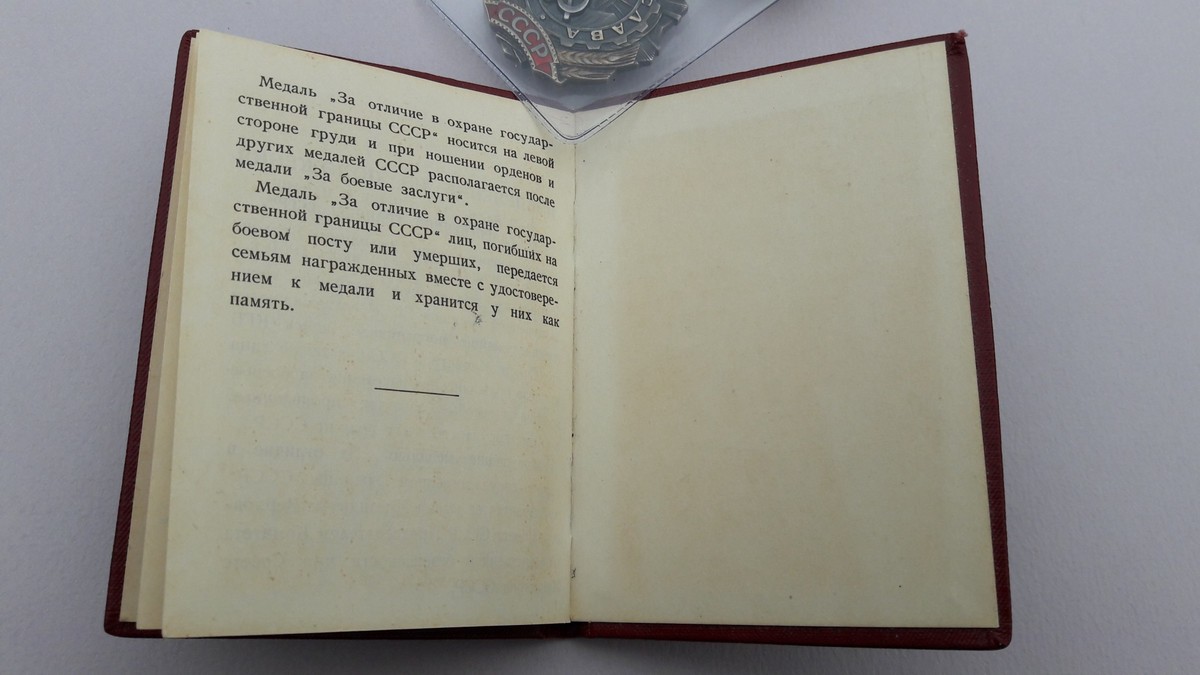 СССР
ЛАВА
Медаль „За отличие в охране государ-
ственной границы СССР“ носится на левой
стороне груди и при ношении орденов и
других медалей СССР располагается после
медали „За боевые заслуги“.
Медаль „За отличие в охране государ-
ственной границы СССР“ лиц, погибших на
боевом посту или умерших, передается
семьям награжденных вместе с удостовере-
нием к медали и хранится у них как
память.